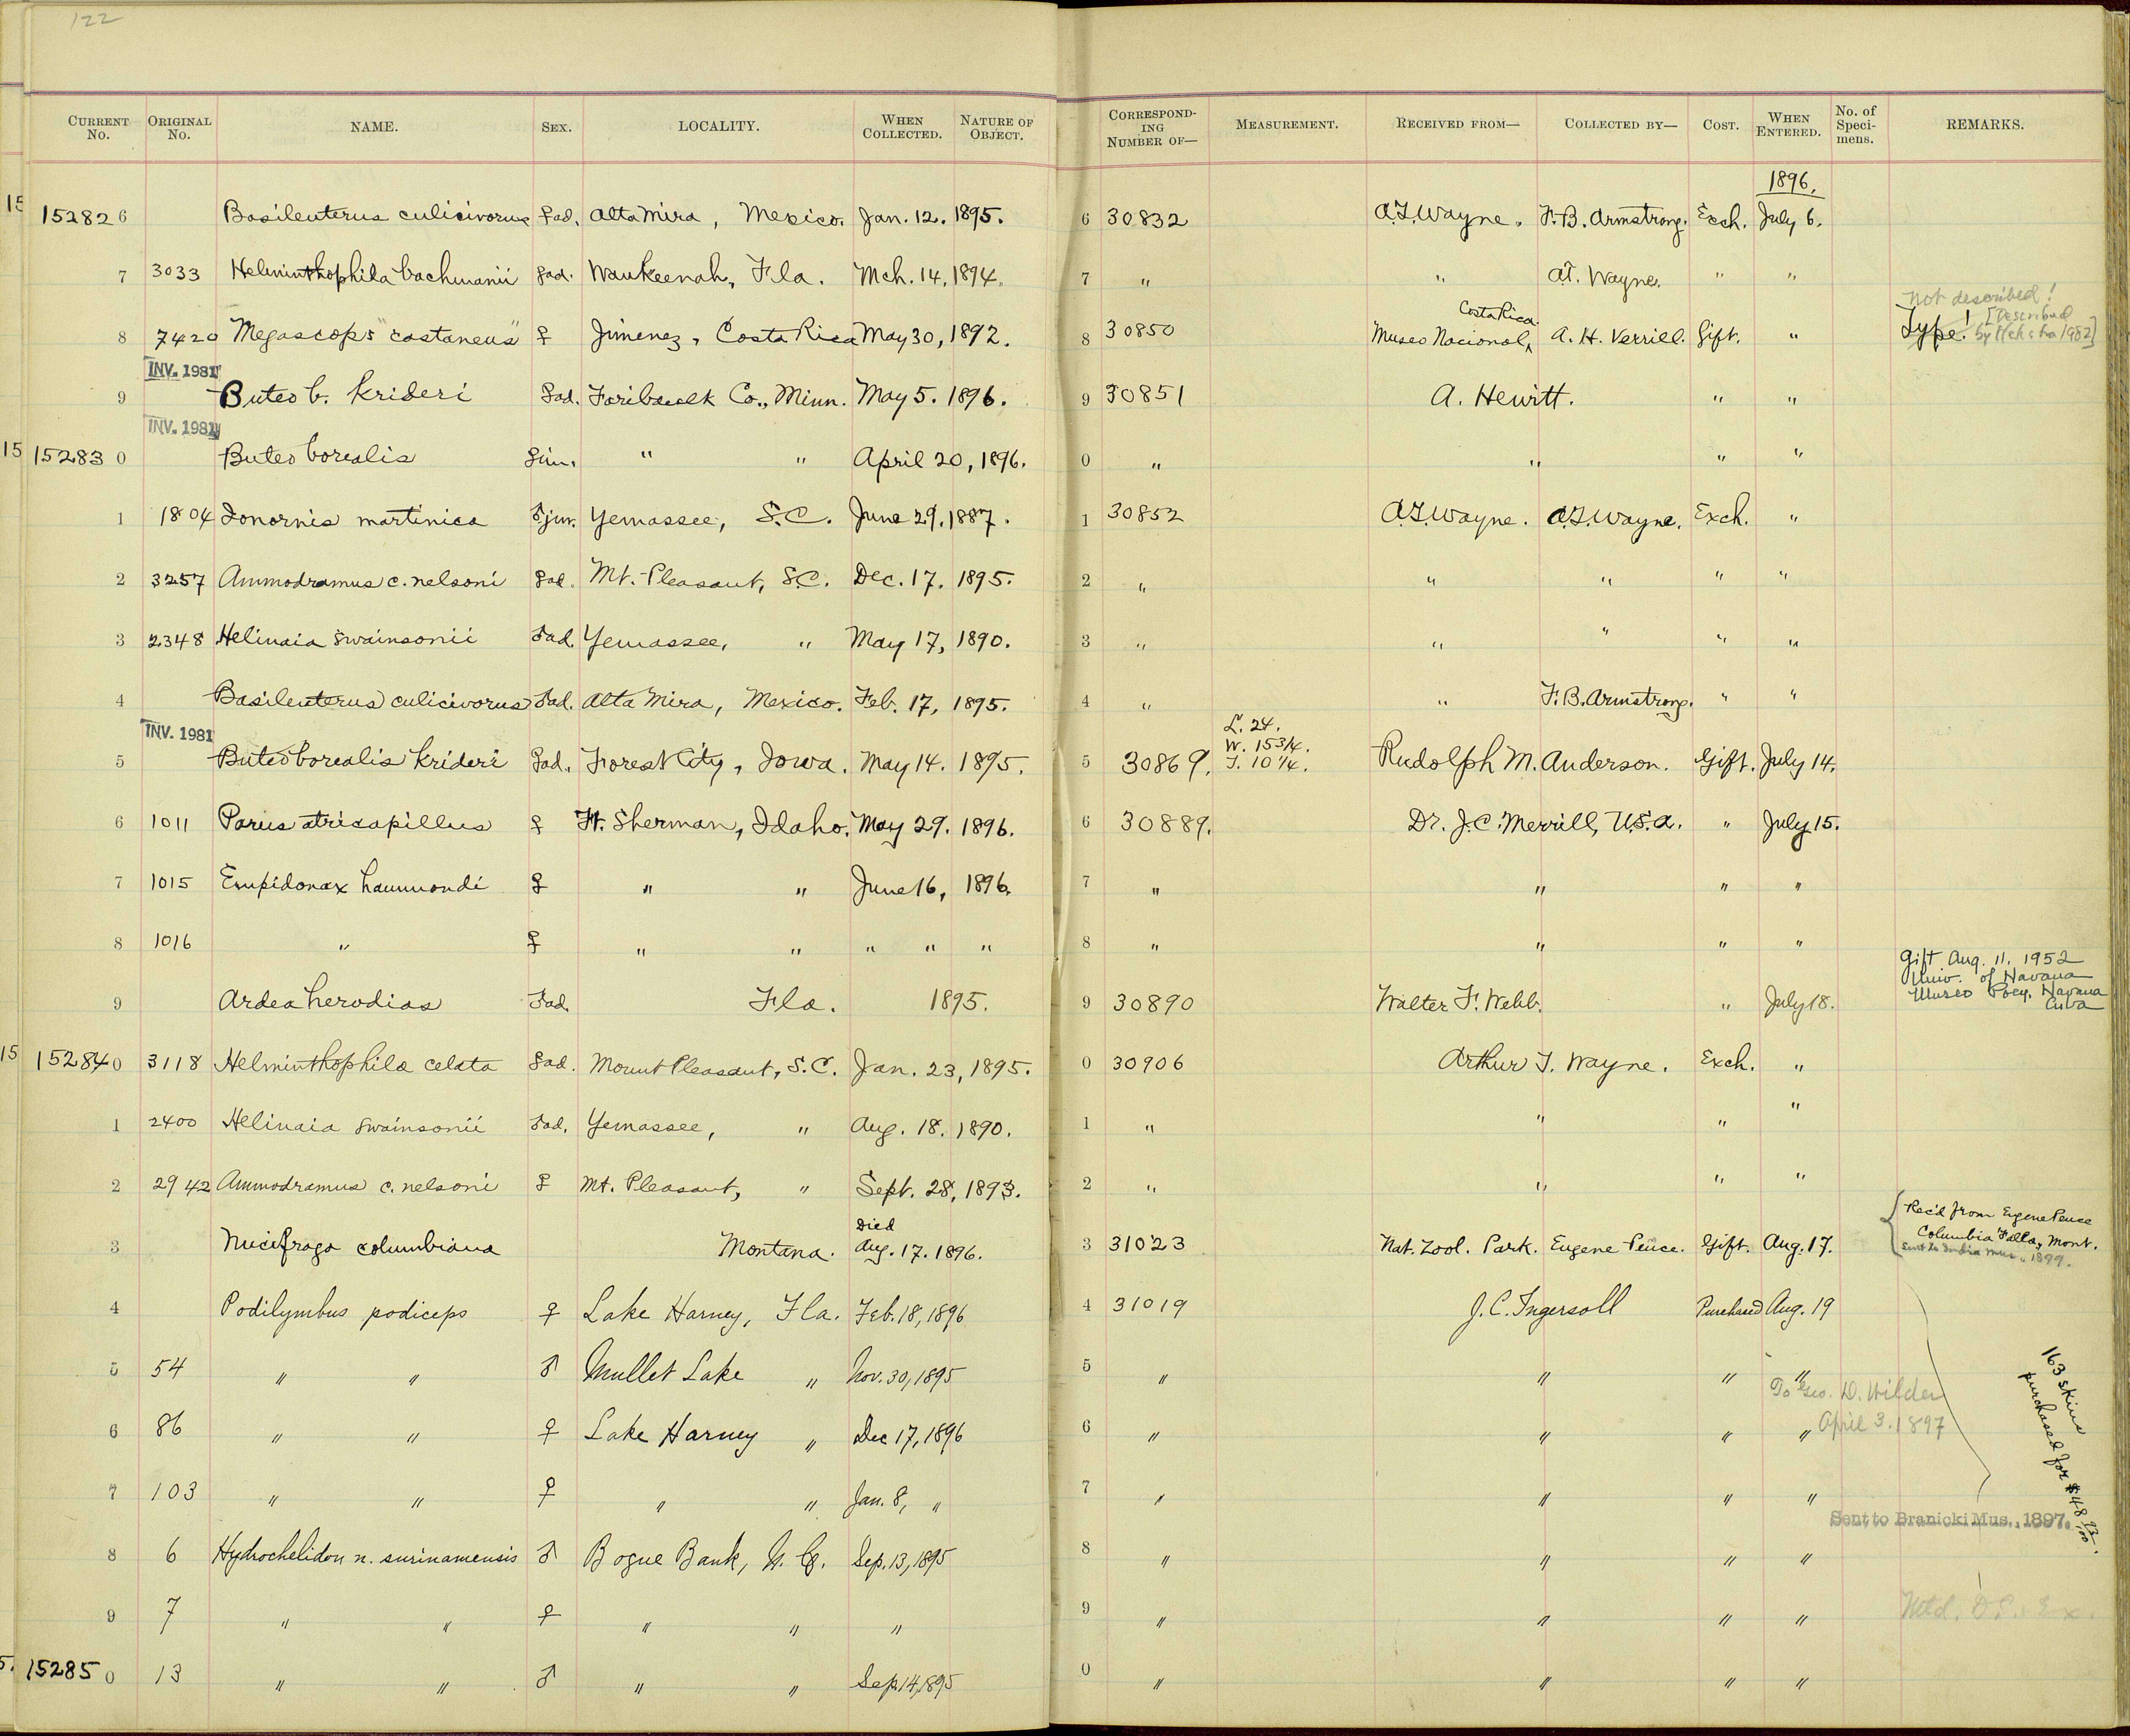 122
CURRENT No. ORIGINAL No. NAME. SEX. LOCALITY. WHEN COLLECTED. NATURE OF OBJECT. CORRESPONDING NUMBER OF— MEASUREMENT. RECEIVED FROM— COLLECTED BY— COST. WHEN ENTERED. No. of Specimens. REMARKS.
1896.
152826 Basileuterus culicivorus ♀ad. Alta Mira, Mexico. Jan. 12. 1895. 6 30832 A.T. Wayne. F.B. Armstrong. Exch. July 6.
7 3033 Helminthophila bachmanii ♀ad. Waukeenah, Fla. Mch. 14, 1894. 7 " " A.T. Wayne. " "
not described!
8 7420 Megascops "castaneus" ♀ Jimenez, Costa Rica May 30, 1892. 8 30850 Museo Nacional, Costa Rica A. H. Verrill. Gift. " Type! [Described by Hekstra 1982]
INV. 1981
9 Buteo b. krideri ♀ad. Faribault Co., Minn. May 5. 1896. 9 30851 A. Hewitt. " "
INV. 1981
152830 Buteo borealis ♀im. " " April 20, 1896. 0 " " " "
1 1804 Ionornis martinica ♂juv. Yemassee, S.C. June 29, 1887. 1 30852 A.T. Wayne. A.T. Wayne. Exch. "
2 3257 Ammodramus c. nelsoni ♀ad. Mt. Pleasant, S.C. Dec. 17. 1895. 2 " " " " "
3 2348 Helinaia swainsonii ♂ad. Yemassee, " May 17, 1890. 3 " " " " "
4 Basileuterus culicivorus ♂ad. Alta Mira, Mexico. Feb. 17, 1895. 4 " " F.B. Armstrong. " "
INV. 1981
5 Buteo borealis krideri ♀ad. Forest City, Iowa. May 14. 1895. 5 30869. L. 24. W. 15 3/4. T. 10 1/4. Rudolph M. Anderson. Gift. July 14.
6 1011 Parus atricapillus ♀ Ft. Sherman, Idaho. May 29. 1896. 6 30889. Dr. J.C. Merrill, U.S.A. " July 15.
7 1015 Empidonax hammondi ♀ " " June 16, 1896. 7 " " " "
8 1016 " ♀ " " " " " 8 " " " "
9 Ardea herodias ♂ad. Fla. 1895. 9 30890 Walter F. Webb. " July 18. Gift Aug. 11, 1952
Univ. of Havana
Museo Poey, Havana
Cuba
152840 3118 Helminthophila celata ♀ad. Mount Pleasant, S.C. Jan. 23, 1895. 0 30906 Arthur T. Wayne. Exch. "
1 2400 Helinaia swainsonii ♂ad. Yemassee, " Aug. 18. 1890. 1 " " " "
2 2942 Ammodramus c. nelsoni ♀ Mt. Pleasant, " Sept. 28, 1893. 2 " " " "
3 Nucifraga columbiana Montana. Died Aug. 17. 1896. 3 31023 Nat. Zool. Park. Eugene Pence. Gift. Aug. 17. Rec'd from Eugene Pence
Columbia Falls, Mont.
Sent to India Mus., 1899.
4 Podilymbus podiceps ♀ Lake Harney, Fla. Feb. 18, 1896 4 31019 J. C. Ingersoll Purchased Aug. 19
5 54 " " ♂ Mullet Lake " Nov. 30, 1895 5 " " " "
To Geo. D. Wilder
April 3. 1897
6 86 " " ♀ Lake Harney " Dec 17, 1896 6 " " " "
163 skins purchased for $48
7 103 " " ♀ " " Jan. 8, " 7 " " " "
Sent to Branicki Mus., 1897.
8 6 Hydrochelidon n. surinamensis ♂ Bogue Bank, N. C. Sep. 13, 1895 8 " " " "
9 7 " " ♀ " " " 9 " " " "
152850 13 " " ♂ " " Sep 14, 1895 0 " " " "